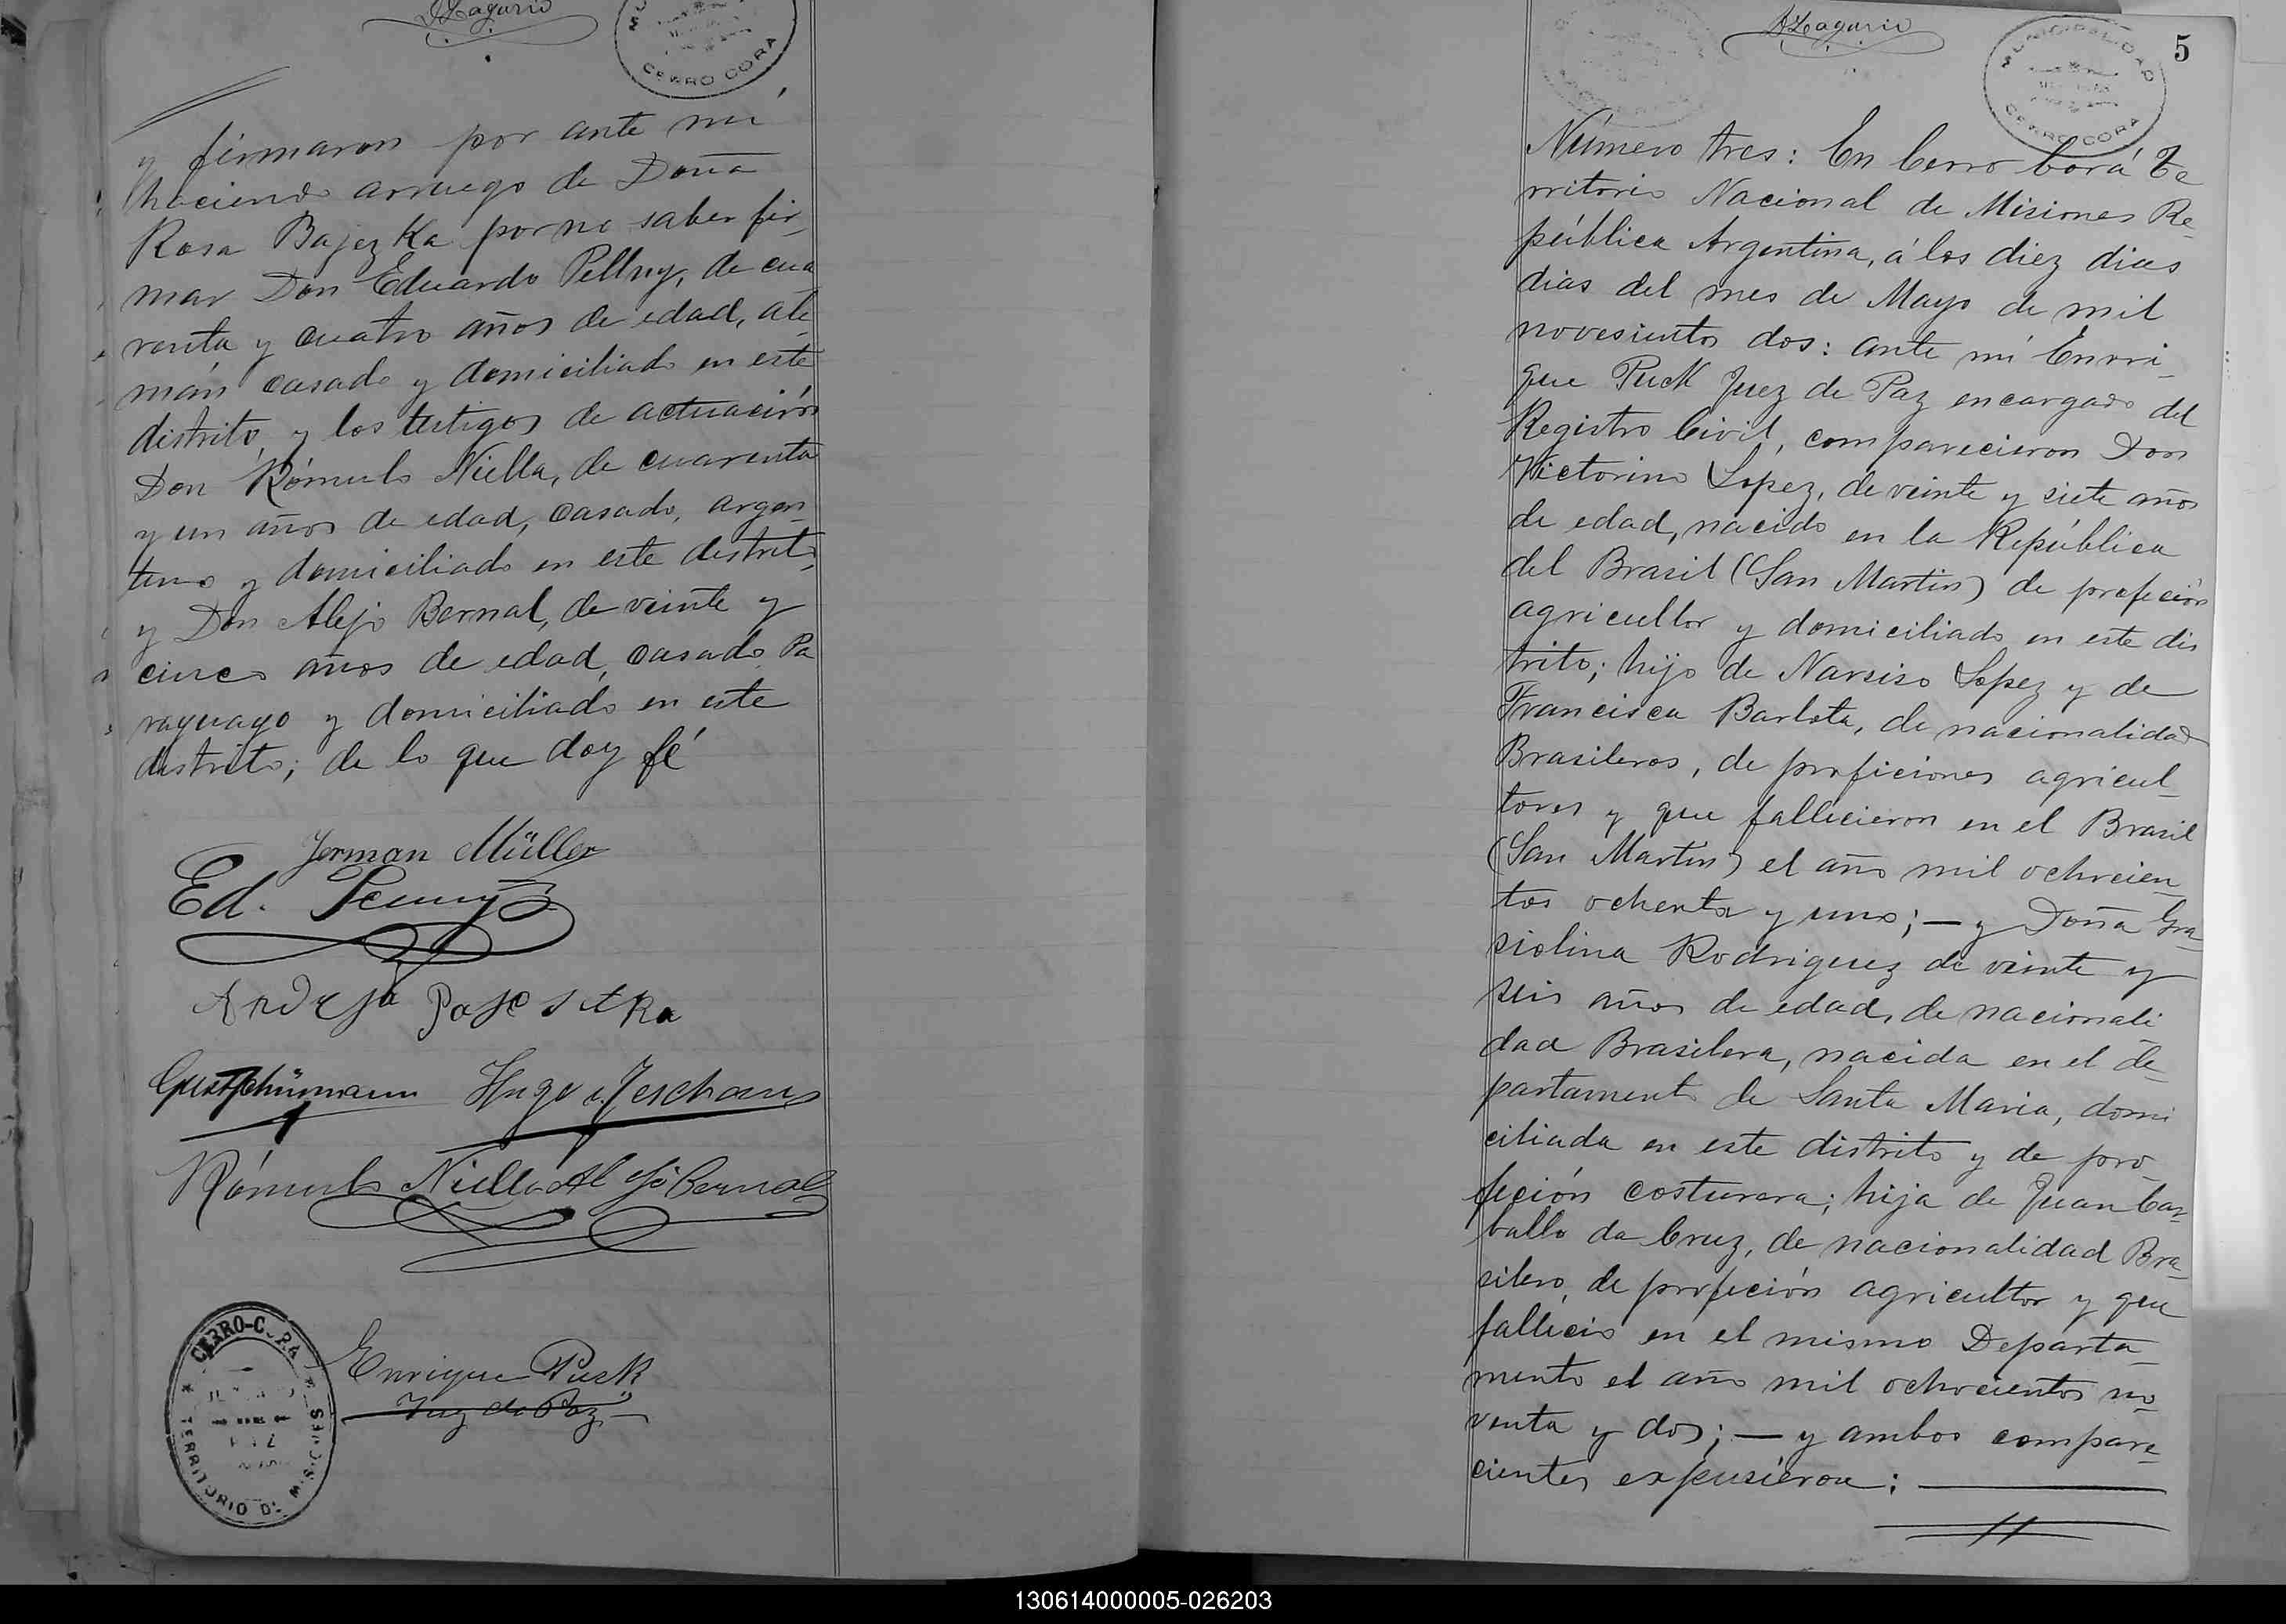 y firmaron por ante mí
haciendo arruego de Doña
Rosa Bajezka por no saber fir-
mar Don Eduardo Pelluy, de cua
renta y cuatro años de edad, ale-
mán casado y domiciliado en este
distrito y los testigos de actuación
Don Rómulo Niella, de cuarenta
y un años de edad, casado, argen-
tino y domiciliado en este distrito
y Don Alejo Bernal, de veinte y
cinco años de edad, casado Pa
raguayo y domiciliado en este
distrito; de lo que doy fé
Jerman Müller
Ed.
Andreja
Gust Schürmann Hugo
Rómulo Niella Alejo Bernal
Enrique Puck
Juez de Paz
CERRO-CORA
TERRITORIO DE MISIONES
CERRO CORA
MUNICIPALIDAD
CERRO CORA
5
Número tres: En Cerro Corá Te
rritorio Nacional de Misiones Re-
pública Argentina, á los diez dias
dias del mes de Mayo de mil
novesientos dos: ante mí Enrri-
que Puck Juez de Paz encargado del
Registro Civil, comparecieron Don
Victorino Lopez, de veinte y siete años
de edad, nacido en la República
del Brasil (San Martin) de profeción
agricultor y domiciliado en este dis
trito; hijo de Narsiso Lopez y de
Francisca Barlota, de nacionalidad
Brasileros, de proficiones agricul-
tores y que fallicieron en el Brasil
(San Martin) el año mil ochocien-
tos ochenta y uno; — y Doña Gra-
siolina Rodriguez de veinte y
seis años de edad, de nacionali
dad Brasilera, nacida en el de-
partamento de Santa Maria, domi
ciliada en este distrito y de pro-
feción costurera; hija de Juan Car-
ballo da Cruz, de nacionalidad Bra-
silero, de profeción agricultor y que
fallicio en el mismo Departa-
mento el año mil ochocientos no-
venta y dos; — y ambos compare-
cientes expusieron:
130614000005-026203